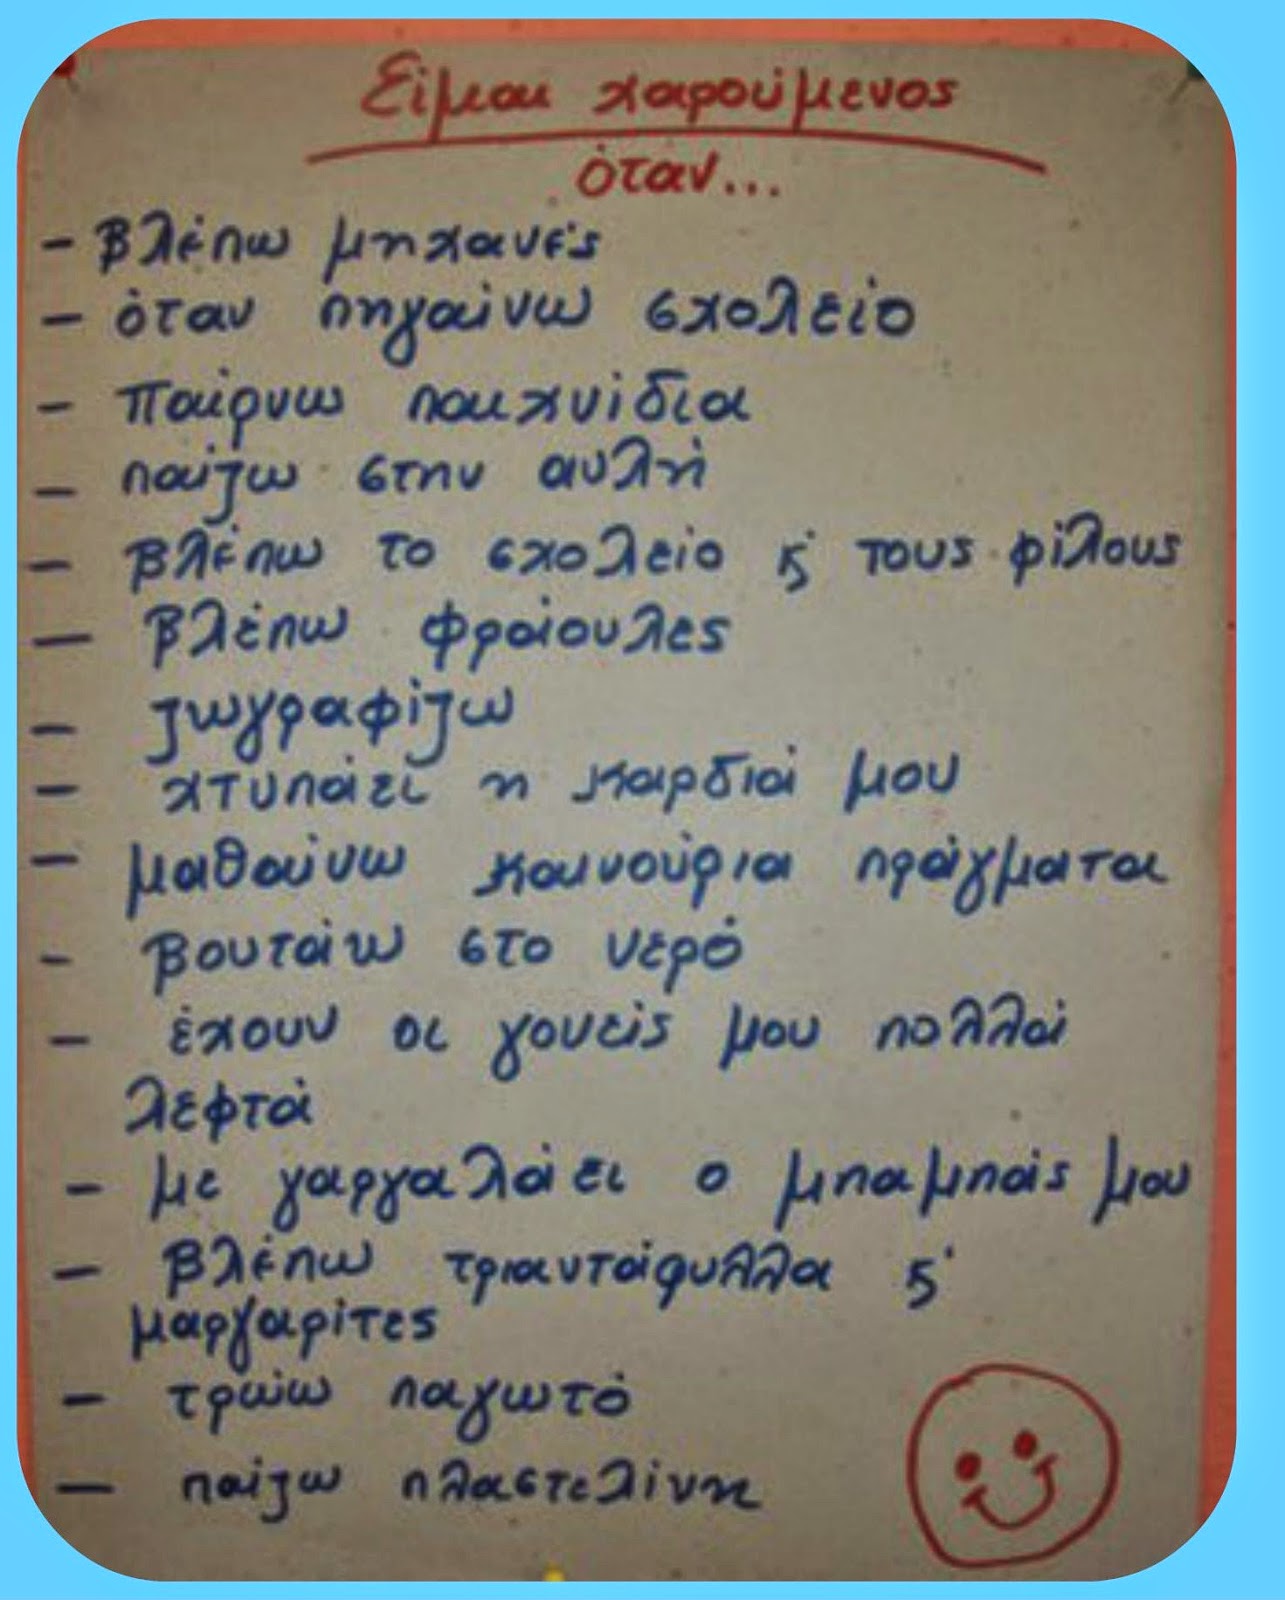 Είμαι χαρούμενος
όταν...
- βλέπω μηχανές
- όταν πηγαίνω σχολείο
- παίρνω παιχνίδια
- παίζω στην αυλή
- βλέπω το σχολείο ϗ τους φίλους
- βλέπω φράουλες
- ζωγραφίζω
- χτυπάει η καρδιά μου
- μαθαίνω καινούρια πράγματα
- βουτάω στο νερό
- έχουν οι γονείς μου πολλά
λεφτά
- με γαργαλάει ο μπαμπάς μου
- βλέπω τριαντάφυλλα ϗ
μαργαρίτες
- τρώω παγωτό
- παίζω πλαστελίνη